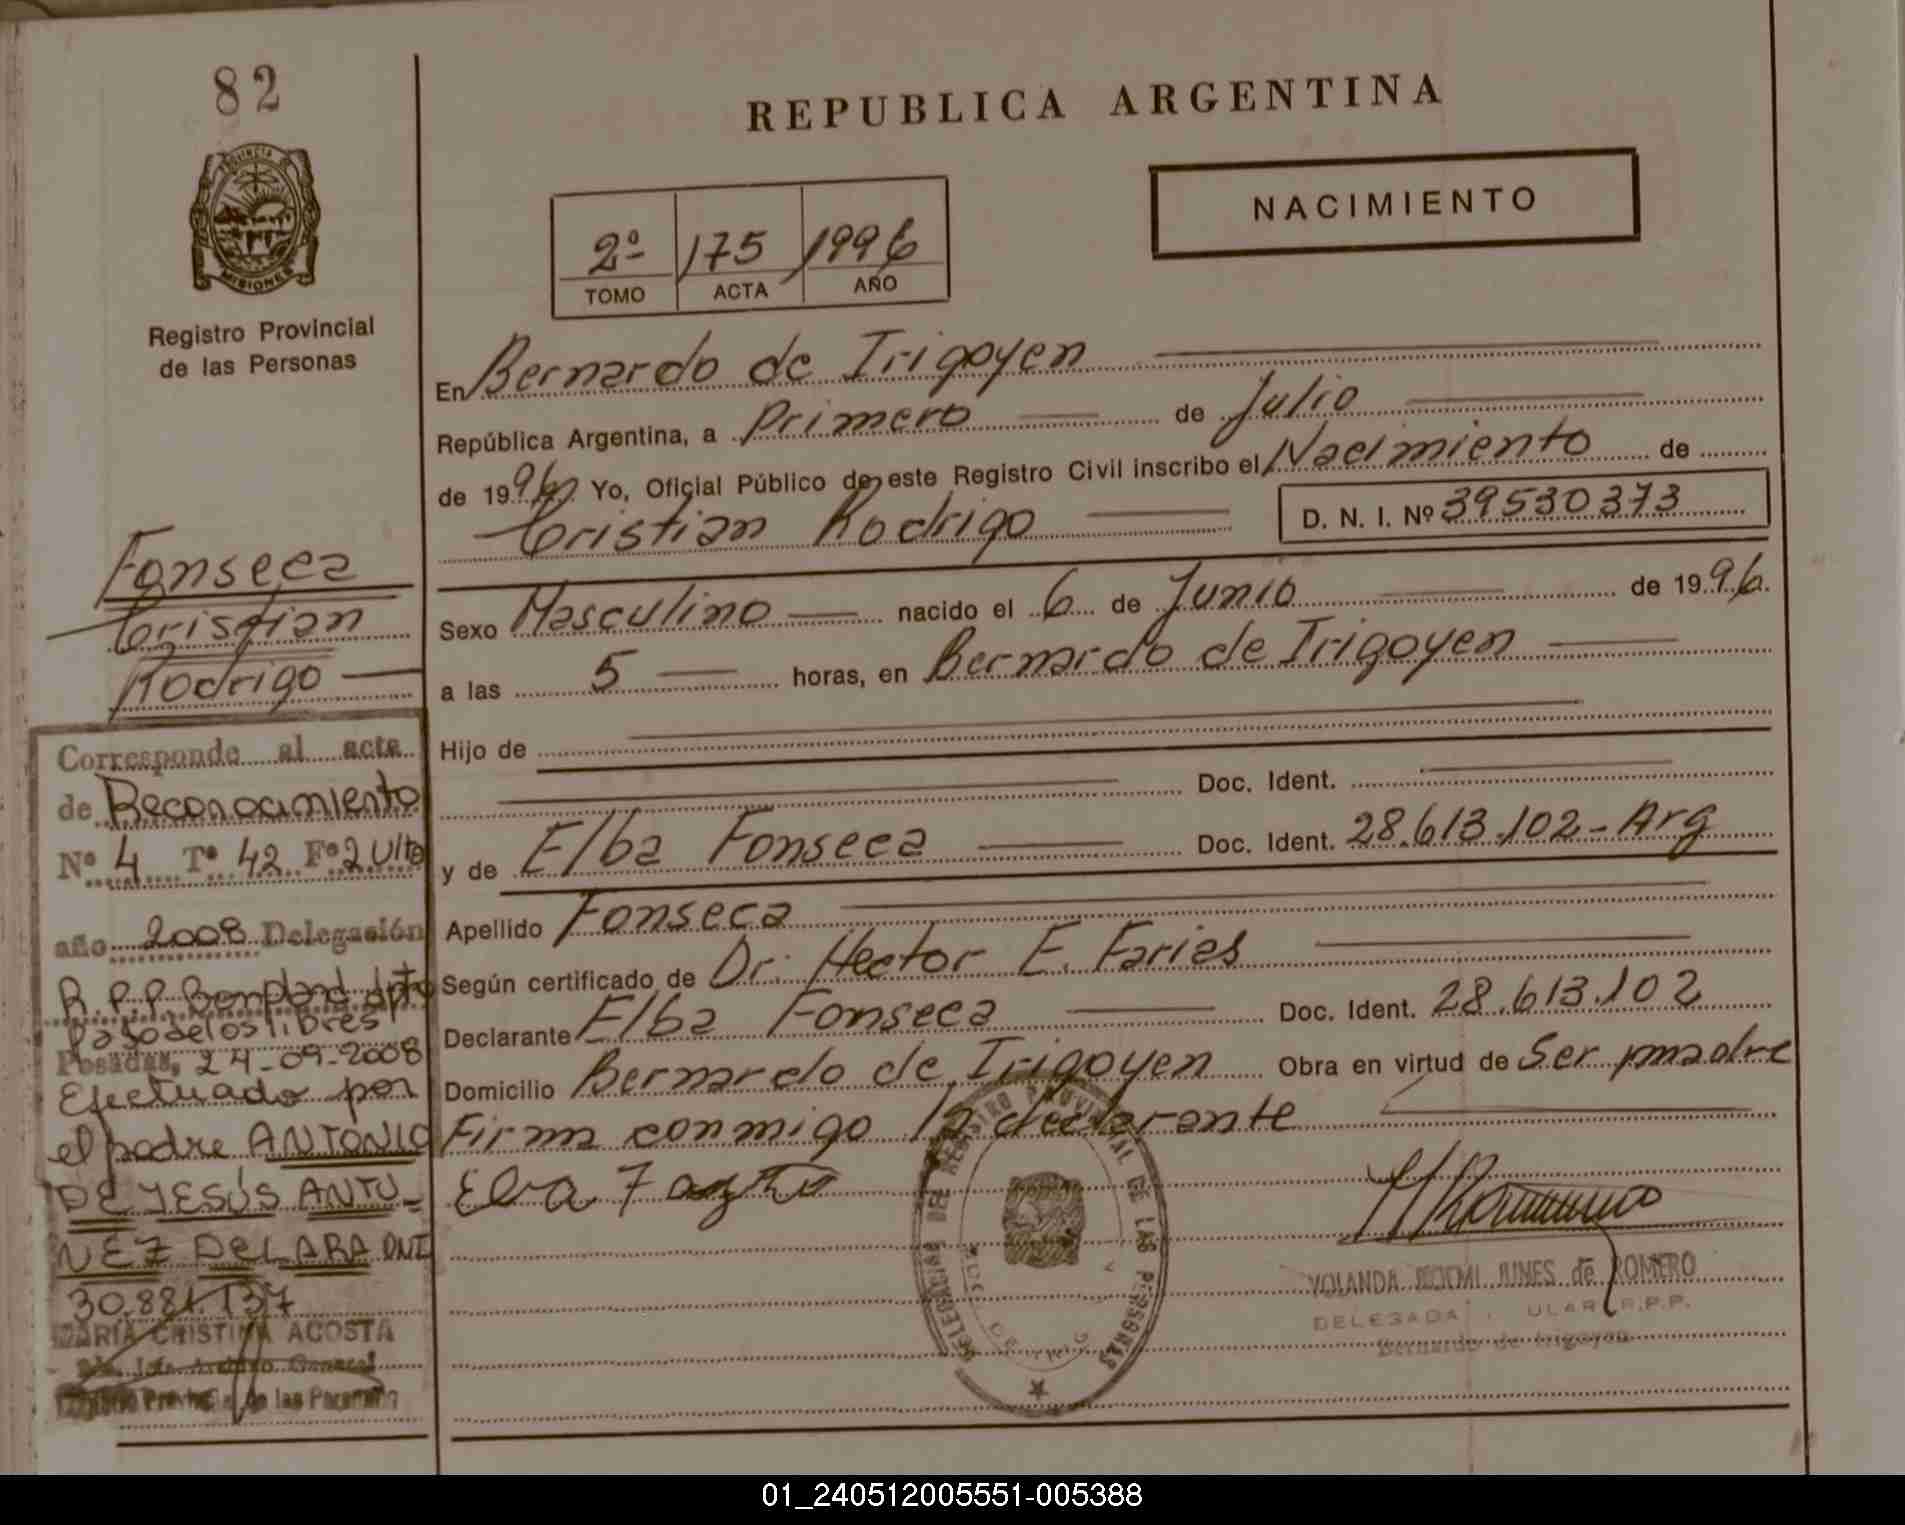 82
PROVINCIA DE
MISIONES
Registro Provincial
de las Personas
Fonseca
Cristian
Rodrigo
Corresponde al acta
de Reconocimiento
Nº 4 Tº 42 Fº 2 Ulto
año 2008 Delegación
R.P.P. Bonpland dpto
Paso de los libres
Posadas, 24-09-2008
Efectuado por
el padre ANTONIO
DE JESÚS ANTU-
NEZ DE LARA DNI
30.881.137
MARIA CRISTINA ACOSTA
Archivo General
Registro Provincial de las Personas
REPUBLICA ARGENTINA
NACIMIENTO
2º 175 1996
TOMO ACTA AÑO
En Bernardo de Irigoyen
República Argentina, a Primero de Julio
de 1996 Yo, Oficial Público de este Registro Civil inscribo el Nacimiento de
Cristian Rodrigo D. N. I. Nº 39530373
Sexo Masculino nacido el 6 de Junio de 1996.
a las 5 horas, en Bernardo de Irigoyen
Hijo de
Doc. Ident.
y de Elba Fonseca Doc. Ident. 28.613.102-Arg
Apellido Fonseca
Según certificado de Dr. Hector E. Farias
Declarante Elba Fonseca Doc. Ident. 28.613.102
Domicilio Bernardo de Irigoyen Obra en virtud de Ser madre
Firma conmigo la declarante
DELEGACION DEL REGISTRO PROVINCIAL DE LAS PERSONAS
YOLANDA NOEMI JUNES de ROMERO
DELEGADA R.P.P.
Bernardo de Irigoyen
01_240512005551-005388